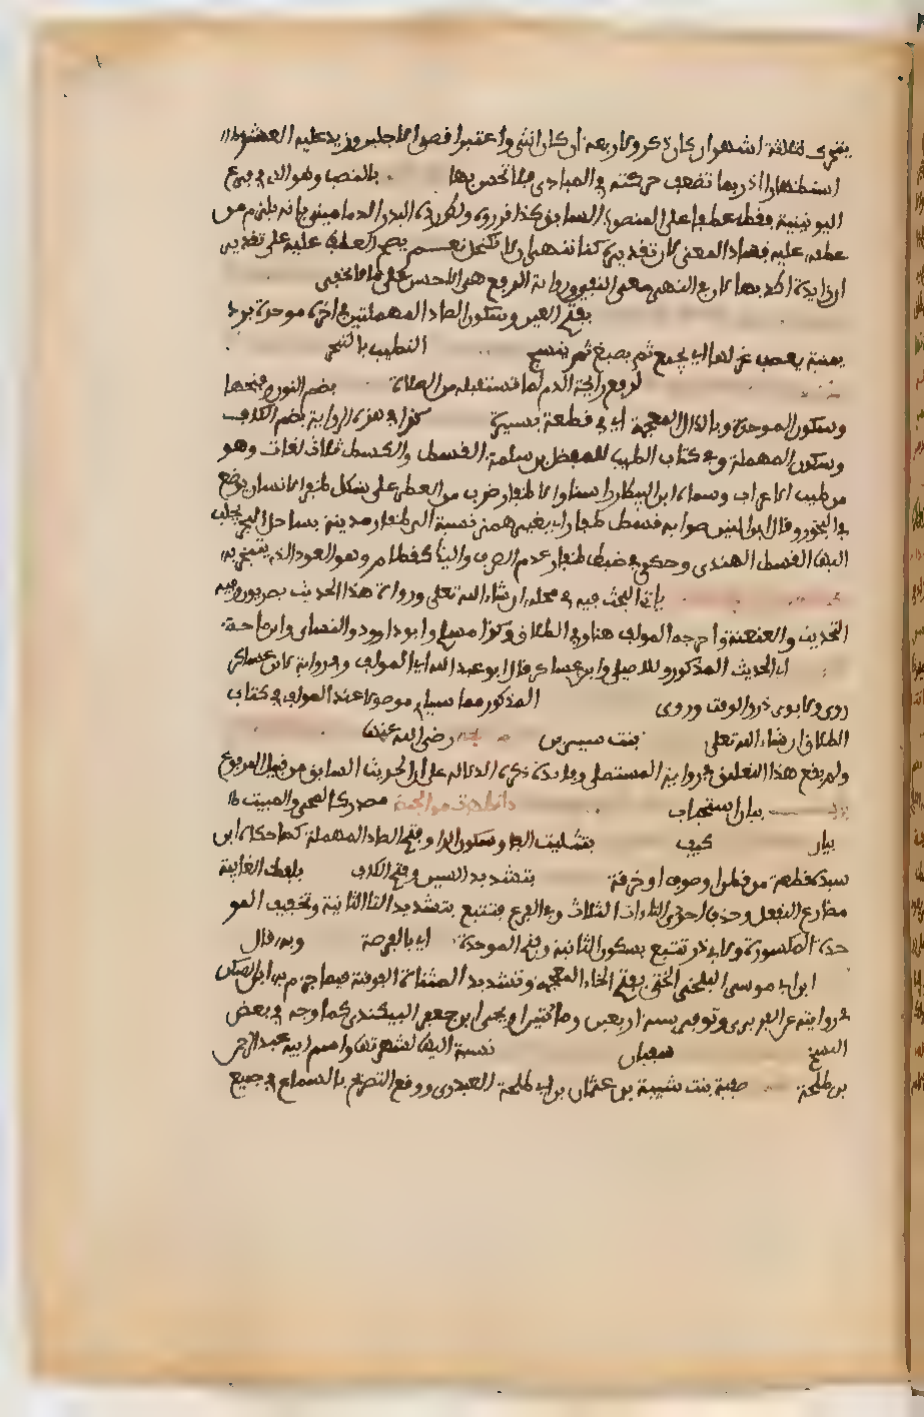 يتحرك لثلاثة اشهر ان كان ذكرا ولاربعة ان كان انثى واعتبر اقصى الاجلين وزيد عليه العشر
استظهارا اذ ربما تضعف حركته في المبادي فلا تحس بها بالنصب وهو الذي في فرع
اليونينية فقط عطفا على المنصوب السابق كذا قرروه ولكن رده البدر الدماميني بانه يلزم من
عطفه عليه فساد المعنى لان تقديره كنا ننهى ان لا نكتحل نعم يصح العطف عليه على تقدير
ان لا زايدة اكد بها لان في النهي معنى النفي ورواية الرفع هي الاحسن على ما لا يخفى
بفتح العين وسكون الصاد المهملتين في اخره موحدة برد
يمنية يعصب غزلها اي يجمع ثم يصبغ ثم ينسج التطيب بالتبخر
لرفع رايحة الدم لما تستقبله من الصلاة بضم النون وفتحها
وسكون الموحدة وبالذال المعجمة اي في قطعة يسيرة كذا في هذه الرواية بضم الكاف
وسكون المهملة وفي كتاب الطيب للمفضل بن سلمة القسط والكسط ثلاث لغات وهو
من طيب الاعراب وسماه ابن البيطار راسنا والاظفار ضرب من العطر على شكل ظفر الانسان يوضع
في البخور وقال ابن التين صوابه قسط ظفار اي بغير همز نسبة الى ظفار مدينة بساحل البحر يجلب
اليها القسط الهندي وحكي في ضبط ظفار عدم الصرف والبناء كقطام وهو العود الذي يتبخر به
ياتي البحث فيه في محله ان شاء الله تعلى ورواة هذا الحديث بصريون وفيه
التحديث والعنعنة واخرجه المولف هنا وفي الطلاق وكذا مسلم وابو داوود والنساي وابن ماجة
اي الحديث المذكور وللاصيلي وابن عساكر قال ابو عبد الله اي المولف وفي رواية لابن عساكر
روى ولابوي ذر والوقت وروى المذكور مما سياتي موصولا عند المولف في كتاب
الطلاق ان شاء الله تعلى بنت سيرين رضي الله عنها
ولم يقع هذا التعليق في رواية المستملي وفايدة ذكره الدلالة على ان الحديث السابق من قبيل المرفوع
بيان استحباب مصدر كالمجي والمبيت
بيان كيف بتثليث الفا وسكون الرا وفتح الصاد المهملة كما حكاه ابن
سيده قطعة من قطن او صوف او خرقة بتشديد السين وفتح الكاف بلفظ الغايبة
مضارع التفعل وحذف احدى التاءات الثلاث وفي الفرع فتتبع بتشديد التا الثانية وتخفيف المو
حدة المكسورة ولابي ذر تتبع بسكون الثانية وفتح الموحدة اي بالفرصة وبه قال
ابن موسى البلخي الختي بفتح الخاء المعجمة وتشديد المثناة الفوقية فيما جزم به ابن السكن
في روايته عن الفربري وتوفي سنة اربعين ومائتين او يحيى ابن جعفر البيكندي كما وجد في بعض
النسخ سفيان نسبة اليها لشهرتها واسم ابيه عبد الرحمن
بن طلحة صفية بنت شيبة بن عثمان بن ابي طلحة العبدري ووقع التصريح بالسماع في جميع